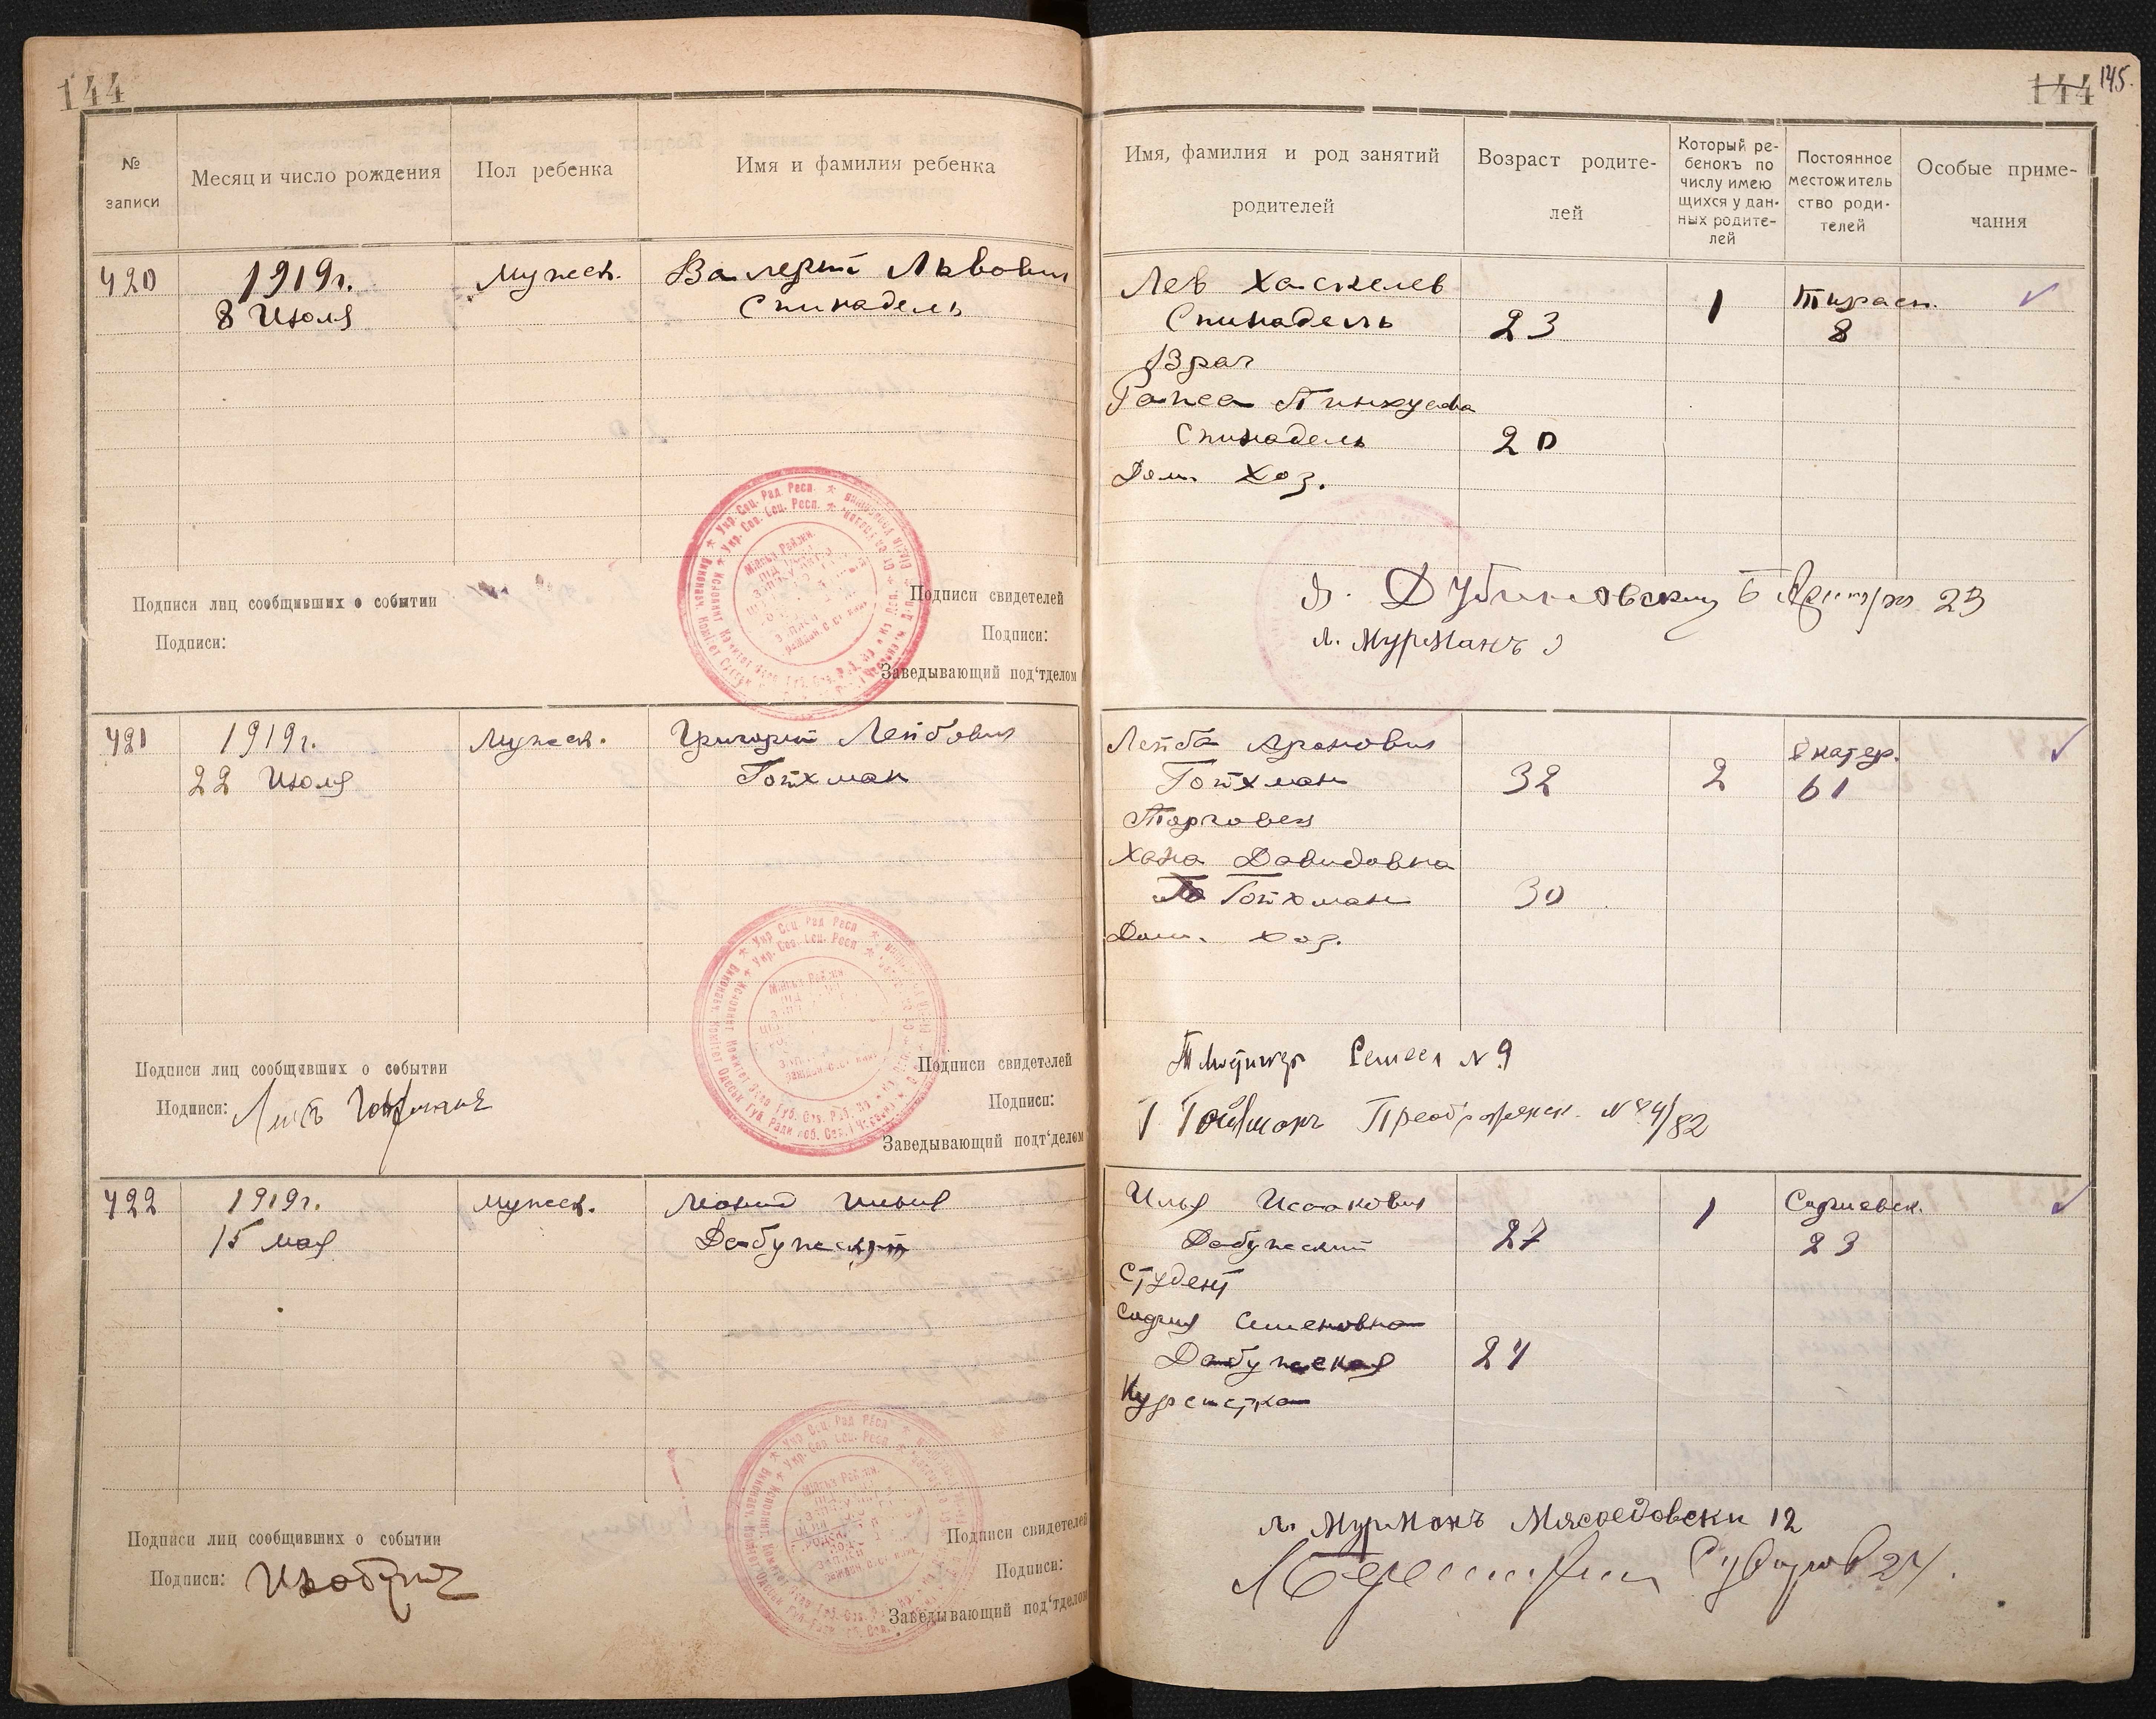 144
№
записи
Месяц и число рождения
Пол ребенка
Имя и фамилия ребенка
420
1919г.
8 Июля
Мужеск.
Валерий Львович
Спинадель
Подписи лиц сообщивших о событии
Подписи:
Подписи свидетелей
Подписи:
Заведывающий под'тделом
421
1919г.
22 Июля
Мужеск.
Григорий Лейбович
Гойхман
Подписи лиц сообщивших о событии
Подписи:
Подписи свидетелей
Подписи:
Заведывающий подт'делом
422
1919г.
15 мая
Мужеск.
Леонид Ильич
Дабужский
Подписи лиц сообщивших о событии
Подписи:
Подписи свидетелей
Подписи:
Заведывающий под'тделом
144 145.
Имя, фамилия и род занятий
родителей
Возраст родите-
лей
Который ре-
бенокъ по
числу имею
щихся у дан-
ных родите-
лей
Постоянное
местожитель
ство роди-
телей
Особые приме-
чания
Лев Хаскелев
Спинадель
Врач
Раиса Пинхусова
Спинадель
Дом. Хоз.
23
20
1
Тирасп.
8
Я. Дубиновский
23
Л. Мурманъ
Лейба Аронович
Гойхман
Торговец
Хана Давидовна
Гойхман
Дом. хоз.
32
30
2
Екатер.
61
№ 9
Гойхманъ Преображенск. № 84/82
Илья Исаакович
Дабужский
Студент
София Семеновна
Дабужская
Курсистка
27
24
1
Софиевск.
23
Л. Мурманъ Мясоедовски 12
24.